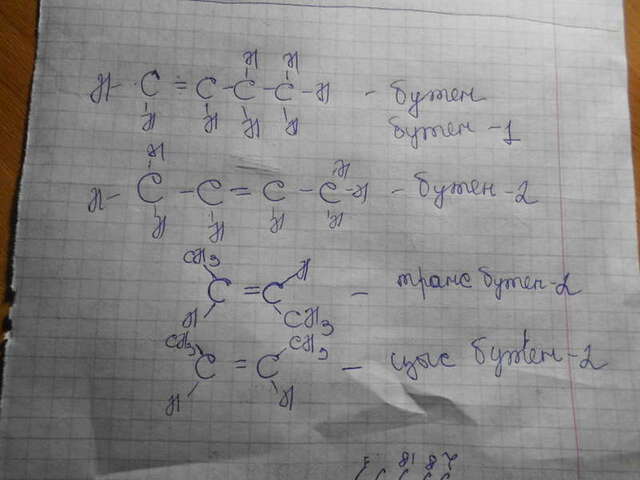 H H
H C = C - C - C - H - бутен
H H H H бутен -1
H
H
H - C - C = C - C - H - бутен -2
H H H H
CH3 H
C = C - транс бутен -2
H CH3
CH3 CH3
C = C - цыс бутен -2
H H